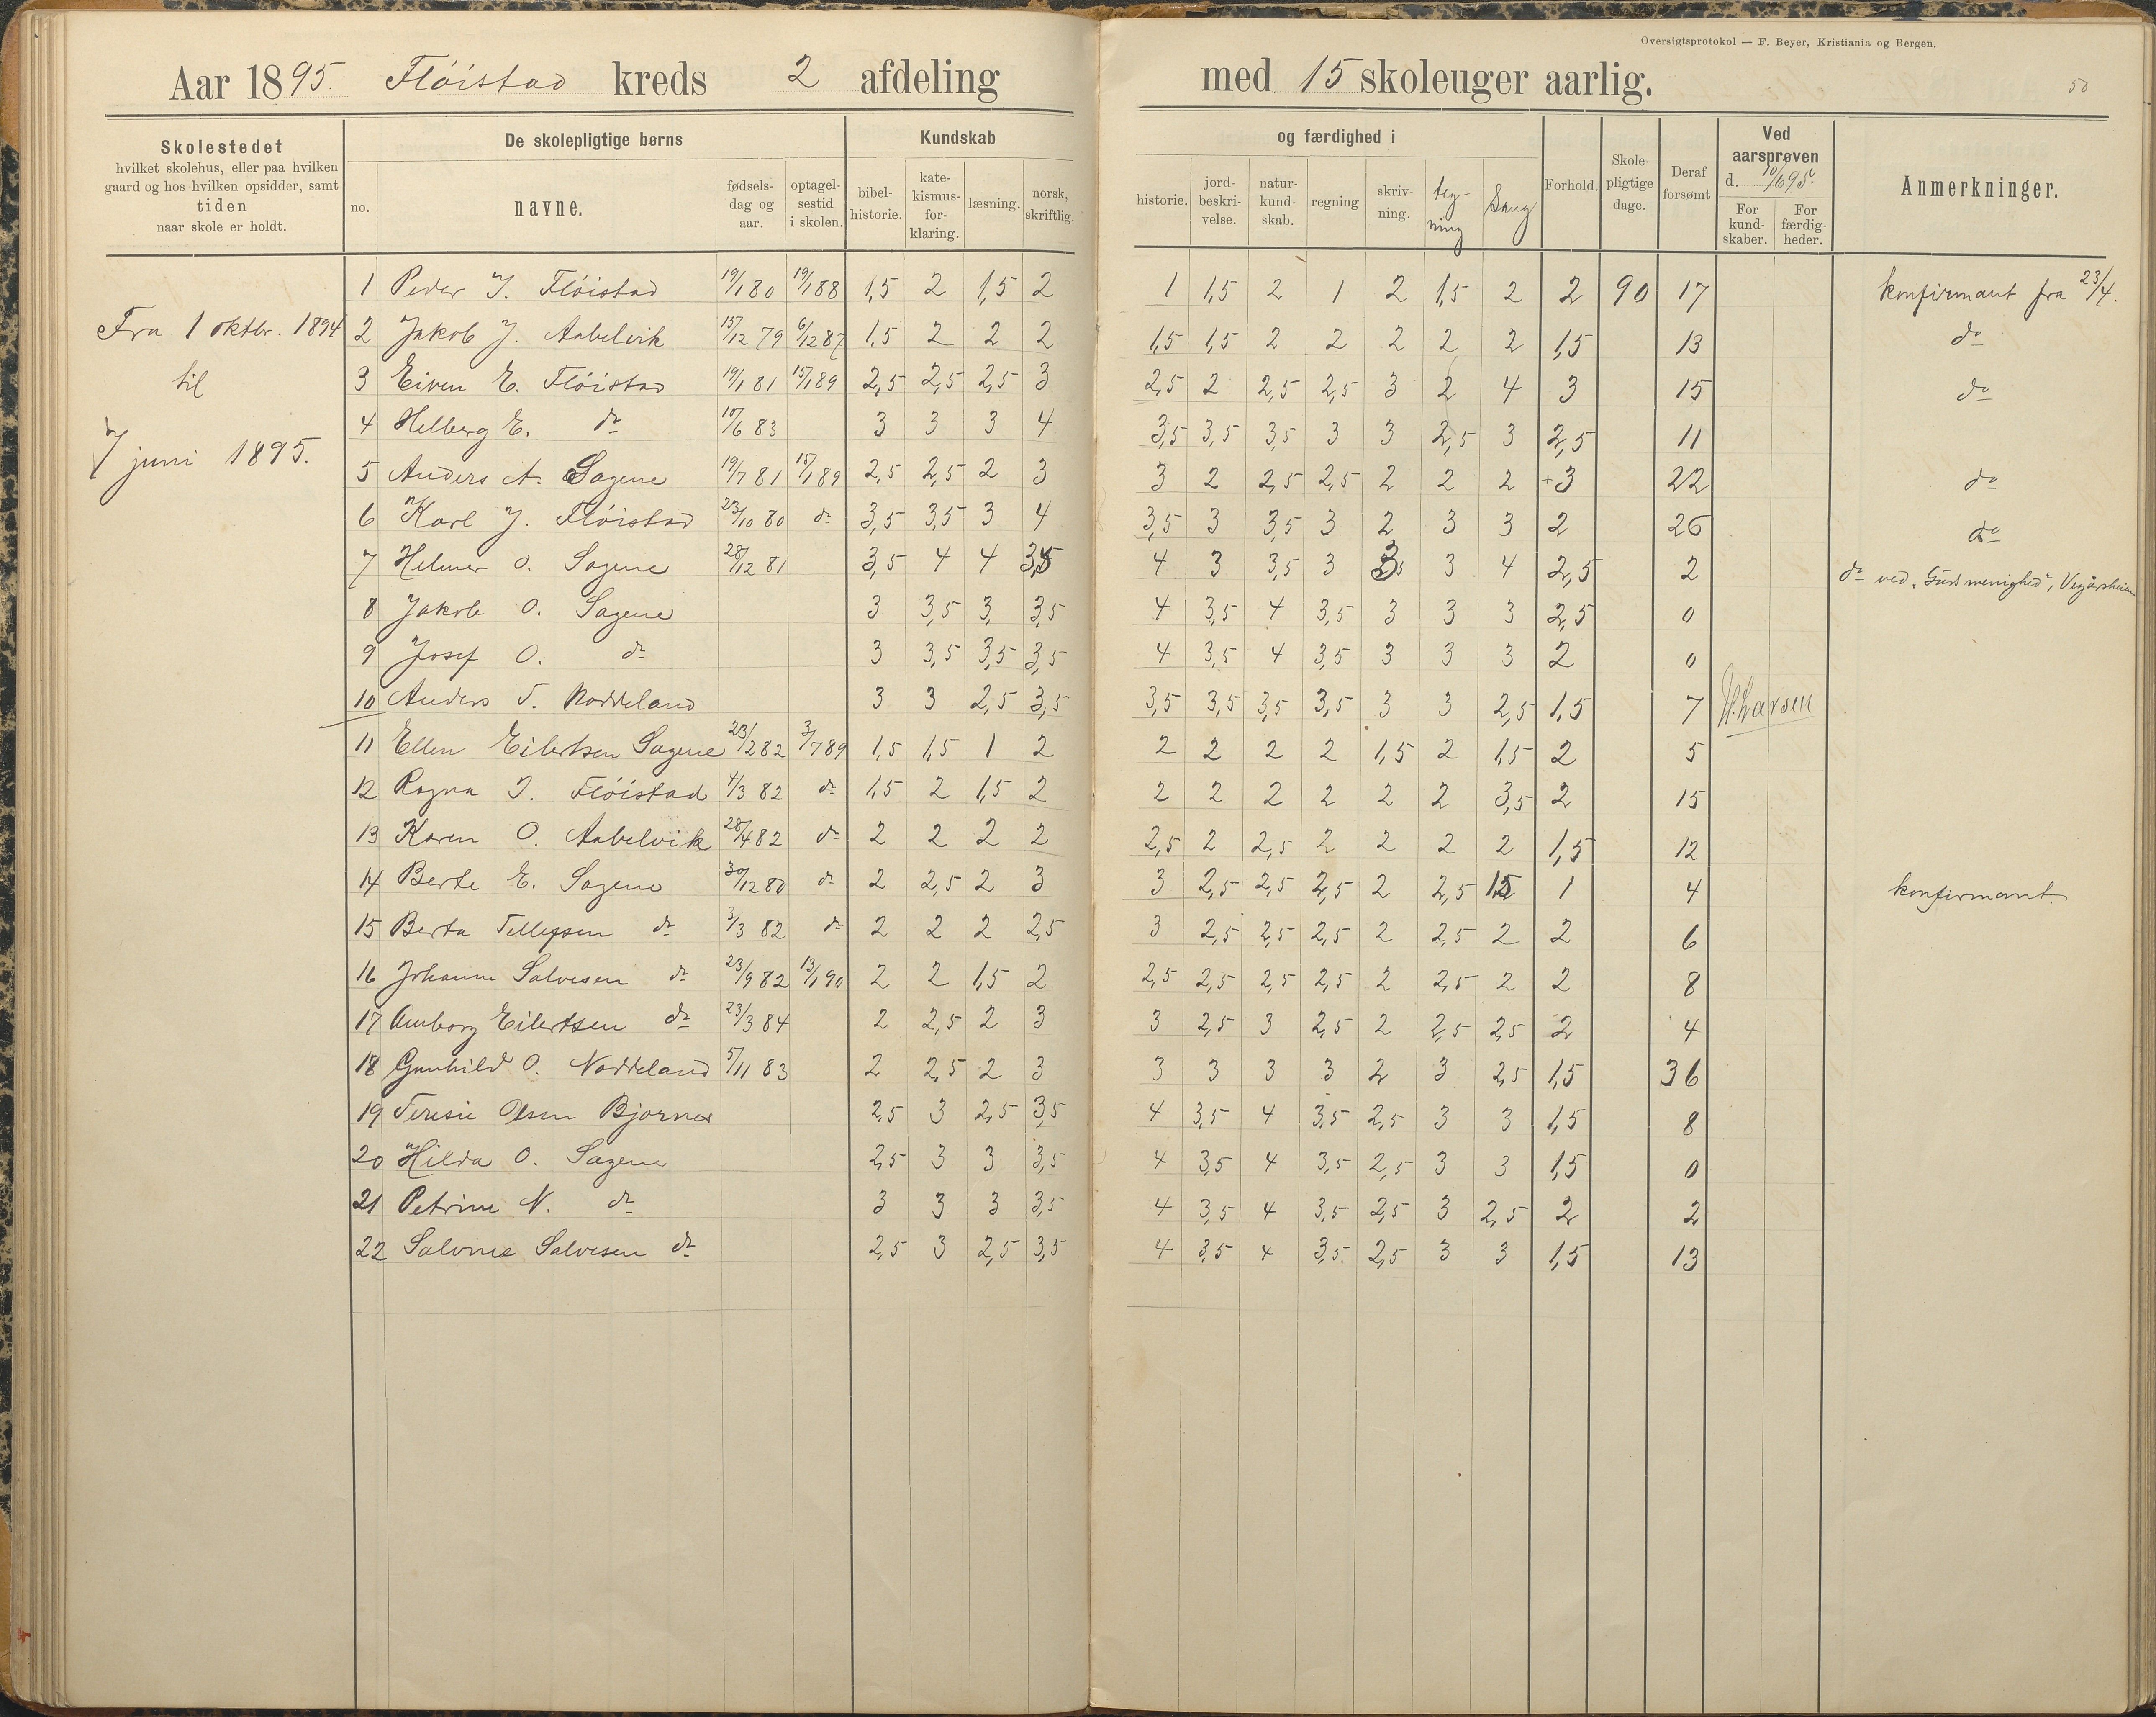 Oversigtsprotokol — F. Beyer, Kristiania og Bergen.
Aar 1895. Flöistad kreds 2 afdeling med 15 skoleuger aarlig. 50
Skolestedet
hvilket skolehus, eller paa hvilken
gaard og hos hvilken opsidder, samt
tiden
naar skole er holdt.
De skolepligtige børns
no. navne. fødsels-dag og aar. optagel-sestid i skolen.
Kundskab og færdighed i
bibel-historie. kate-kismus-for-klaring. læsning. norsk, skriftlig. historie. jord-beskri-velse. natur-kund-skab. regning skriv-ning. teg-ning Sang
Forhold. Skole-pligtige dage. Deraf forsømt
Ved aarsprøven d. 10/6 95.
For kund-skaber. For færdig-heder.
Anmerkninger.
Fra 1 oktbr. 1894
til
7 juni 1895.
1 Peder J. Flöistad 19/1 80 19/1 88 1,5 2 1,5 2 1 1,5 2 1 2 1,5 2 2 90 17 konfirmant fra 23/4.
2 Jakob J. Aabelvik 15/12 79 6/12 87 1,5 2 2 2 1,5 1,5 2 2 2 2 2 1,5 13 do
3 Eiven E. Flöistad 19/1 81 15/1 89 2,5 2,5 2,5 3 2,5 2 2,5 2,5 3 2 4 3 15 do
4 Helberg E. do 17/6 83 3 3 3 4 3,5 3,5 3,5 3 3 2,5 3 2,5 11
5 Anders A. Sagene 19/7 81 15/1 89 2,5 2,5 2 3 3 2 2,5 2,5 2 2 2 +3 22 do
6 Karl J. Flöistad 23/10 80 do 3,5 3,5 3 4 3,5 3 3,5 3 2 3 3 2 26 do
7 Helmer O. Sagene 28/12 81 3,5 4 4 3,5 4 3 3,5 3 3 3 4 2,5 2 do ved "Guds menighed", Vegårsheien
8 Jakob O. Sagene 3 3,5 3, 3,5 4 3,5 4 3,5 3 3 3 2,5 0
9 Josef O. do 3 3,5 3,5 3,5 4 3,5 4 3,5 3 3 3 2 0
10 Anders T. Noddeland 3 3 2,5 3,5 3,5 3,5 3,5 3,5 3 3 2,5 1,5 7 H. Larsen
11 Ellen Eilertsen Sagene 23/2 82 3/7 89 1,5 1,5 1 2 2 2 2 2 1,5 2 1,5 2 5
12 Ragna J. Flöistad 4/3 82 do 1,5 2 1,5 2 2 2 2 2 2 2 3,5 2 15
13 Karen O. Aabelvik 28/4 82 do 2 2 2 2 2,5 2 2,5 2 2 2 2 1,5 12
14 Berte E. Sagene 30/12 80 do 2 2,5 2 3 3 2,5 2,5 2,5 2 2,5 1,5 1 4 konfirmant.
15 Berta Tellefsen do 3/3 82 do 2 2 2 2,5 3 2,5 2,5 2,5 2 2,5 2 2 6
16 Johanne Salvesen do 23/9 82 13/1 90 2 2 1,5 2 2,5 2,5 2,5 2,5 2 2,5 2 2 8
17 Amborg Eilertsen do 23/3 84 2 2,5 2 3 3 2,5 3 2,5 2 2,5 2,5 2 4
18 Gunhild O. Noddeland 5/11 83 2 2,5 2 3 3 3 3 3 2 3 2,5 1,5 36
19 Teresie Olsen Bjornes 2,5 3 2,5 3,5 4 3,5 4 3,5 2,5 3 3 1,5 8
20 Hilda O. Sagene 2,5 3 3 3,5 4 3,5 4 3,5 2,5 3 3 1,5 0
21 Petrine N. do 3 3 3 3,5 4 3,5 4 3,5 2,5 3 2,5 2 2
22 Salvine Salvesen do 2,5 3 2,5 3,5 4 3,5 4 3,5 2,5 3 3 1,5 13